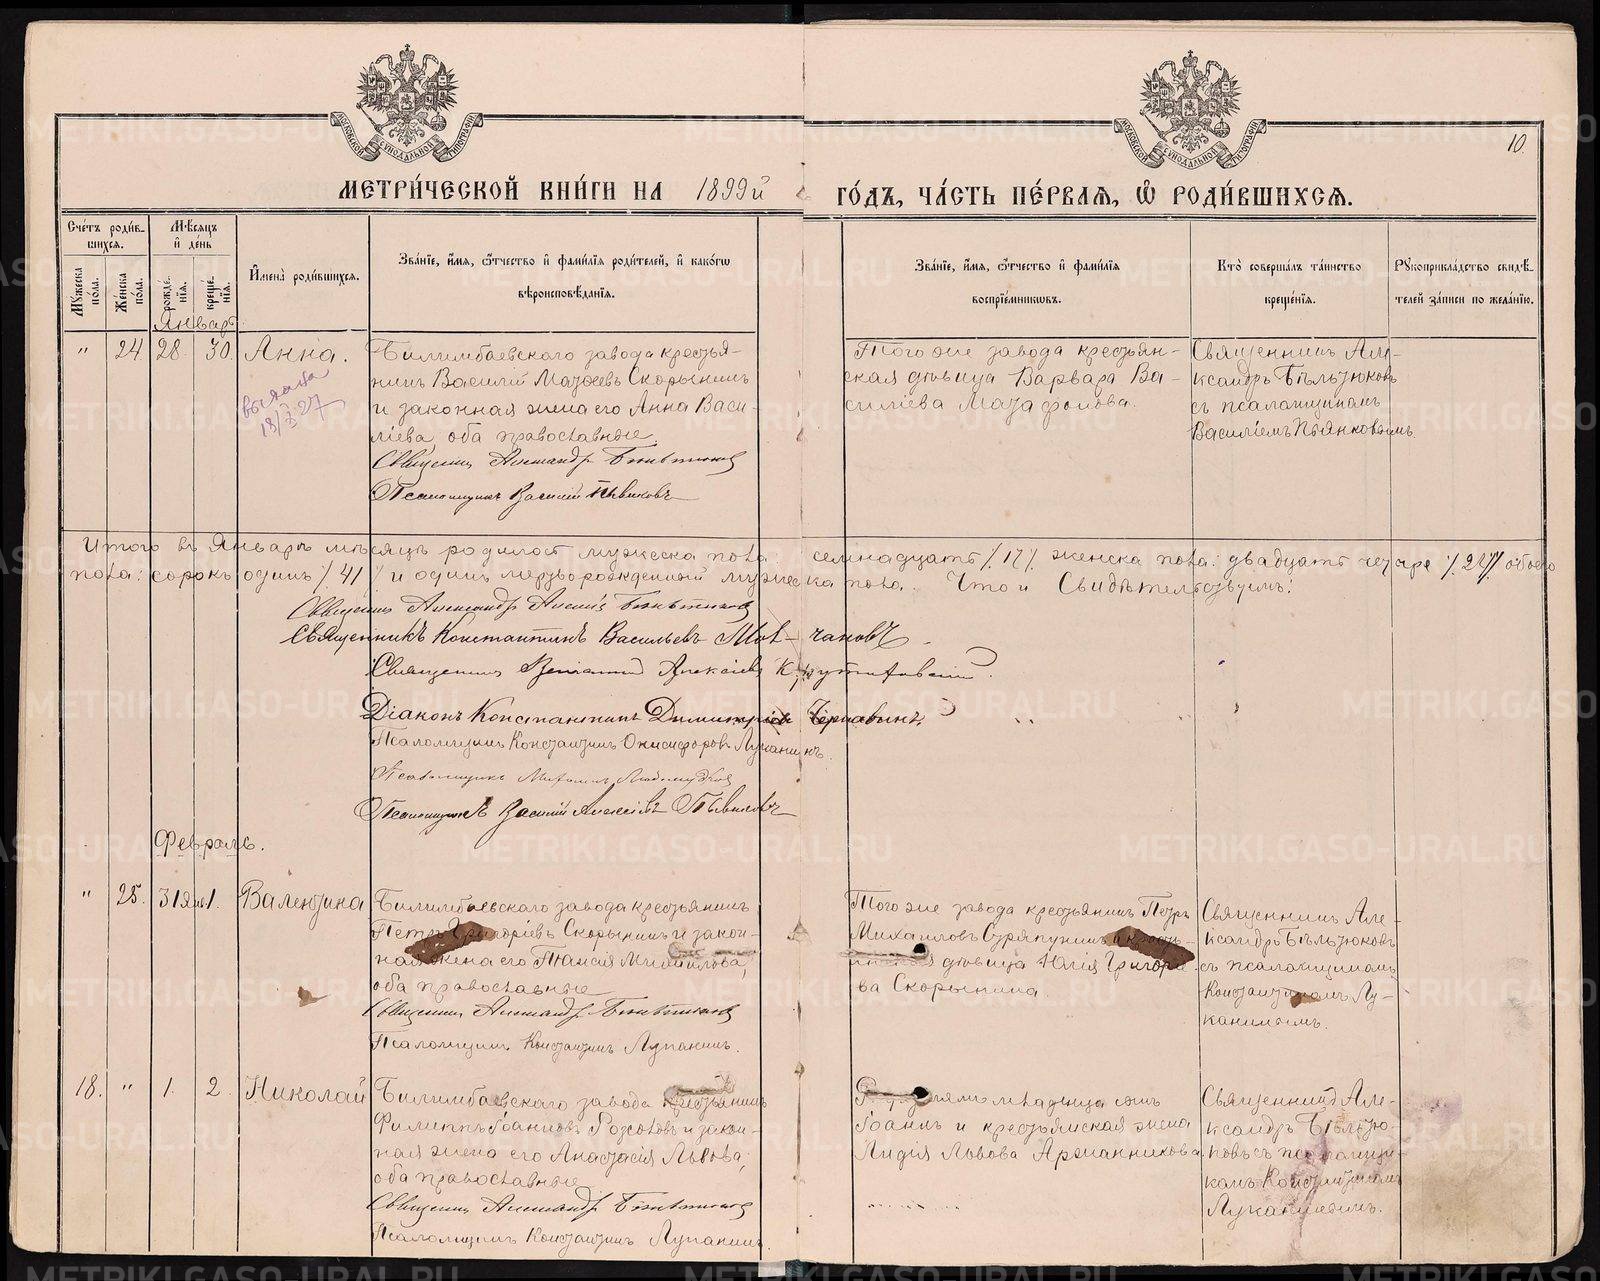 МЕТРИ́ЧЕСКОЙ КНИ́ГИ НА 1899й ГО́ДЪ, ЧА́СТЬ ПЕ́РВАЯ, Ѽ РОДИ́ВШИХСЯ.
10.
Сче́тъ роди́в-
шихся.
Мѣ́сяцъ
и҆ де́нь
Му́жеска
по́ла.
Же́нска
по́ла.
рожде́-
нїя.
креще́-
нїя.
И҆мена̀ роди́вшихся.
Зва́нїе, и҆́мя, ѻ҆́тчество и҆ фами́лїя роди́телей, и҆ како́гѡ
вѣроисповѣ́данїя.
Зва́нїе, и҆́мя, ѻ҆́тчество и҆ фами́лїя
воспрїе́мниковъ.
Кто̀ соверша́лъ та́инство
креще́нїя.
Рꙋкоприкла́дство свидѣ́-
телей за́писи по жела́нїю.
Январь
" 24 28 30. Анна.
Билимбаевскаго завода кресть-
нинъ Василій Скорынинъ
и законная жена его Анна Васи-
ліева оба православные.
Священникъ Александръ
Псаломщикъ Василій Пьянковъ
Того же завода крестьян-
ская дѣвица Варвара Ва-
силіева
Священникъ Але-
ксандръ Бѣльтюковъ
съ псаломщикомъ
Василіемъ Пьянковымъ
выдана
Итого въ Январѣ мѣсяцѣ родилось мужеска пола: семнадцать /17/ женска пола: двадцать четыре /24/ обоего
пола: сорокъ одинъ /41/ и одинъ мертворожденный мужеска пола. Что и Свидѣтельствуемъ:
Священникъ Александръ Алексіевъ Бѣльтюковъ
Священникъ Константинъ Васильевъ Мол-чановъ
Священникъ Алексіевъ
Діаконъ Константинъ Димитріевъ Чернавинъ
Псаломщикъ Константинъ Онисифоровъ Луканинъ.
Псаломщикъ
Псаломщикъ Василій Алексіевъ Пьянковъ
Февраль.
" 25. 31 Янв. 1. Валентина
Билимбаевскаго завода крестьянинъ
Петръ Григоріевъ Скорынинъ и закон-
ная жена его Таисія Михайлова,
оба православные
Священникъ Александръ Бѣльтюковъ
Псаломщикъ Константинъ Луканинъ.
Того же завода крестьянинъ Петръ
Михаиловъ Стряпунинъ и кресть-
янская дѣвица Юлія Григорie-
ва Скорынина.
Священникъ Але-
ксандръ Бѣльтюковъ
съ псаломщикомъ
Константиномъ Лу-
канинымъ.
18. " 1. 2. Николай
Билимбаевскаго завода крестьянинъ
Филиппъ Іоанновъ и закон-
ная жена его Анастасія Львова,
оба православные
Священникъ Александръ Бѣльтюковъ
Псаломщикъ Константинъ Луканинъ.
младенца
Іоаннъ и крестьянская жена
Лидія Львова
Священникъ Але-
ксандръ Бѣльтю-
ковъ съ псаломщи-
комъ Константиномъ
Луканинымъ.
METRIKI.GASO-URAL.RU